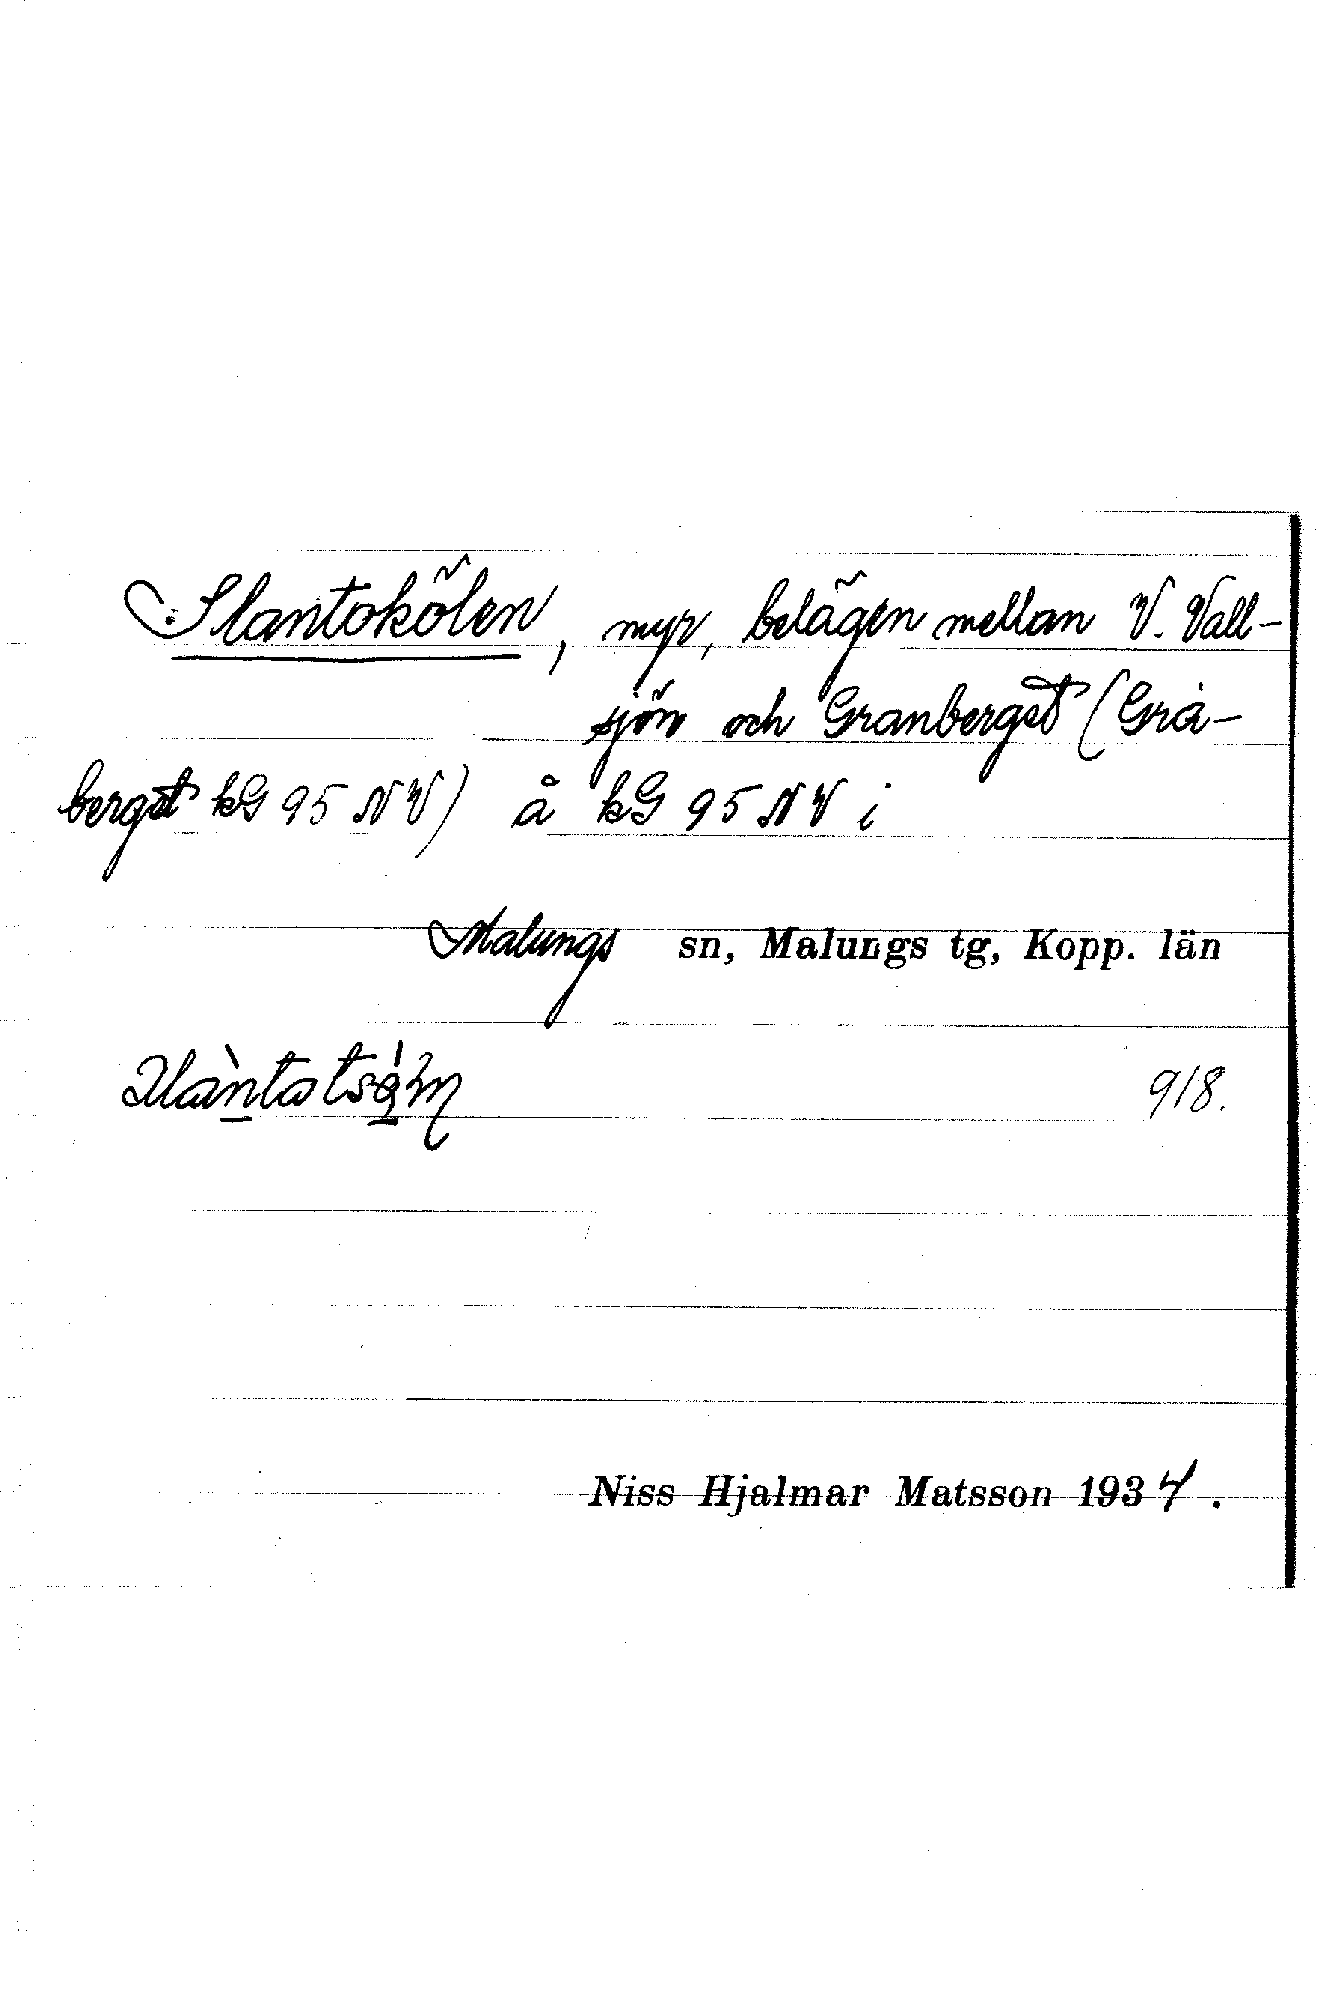 Slantokölen, myr, belägen mellan V. Vall-
sjön och Granberget (Grå-
berget kG 95 NV) å kG 95 NV i
Malungs sn, Malungs tg, Kopp. län
918.
Niss Hjalmar Matsson 1934.